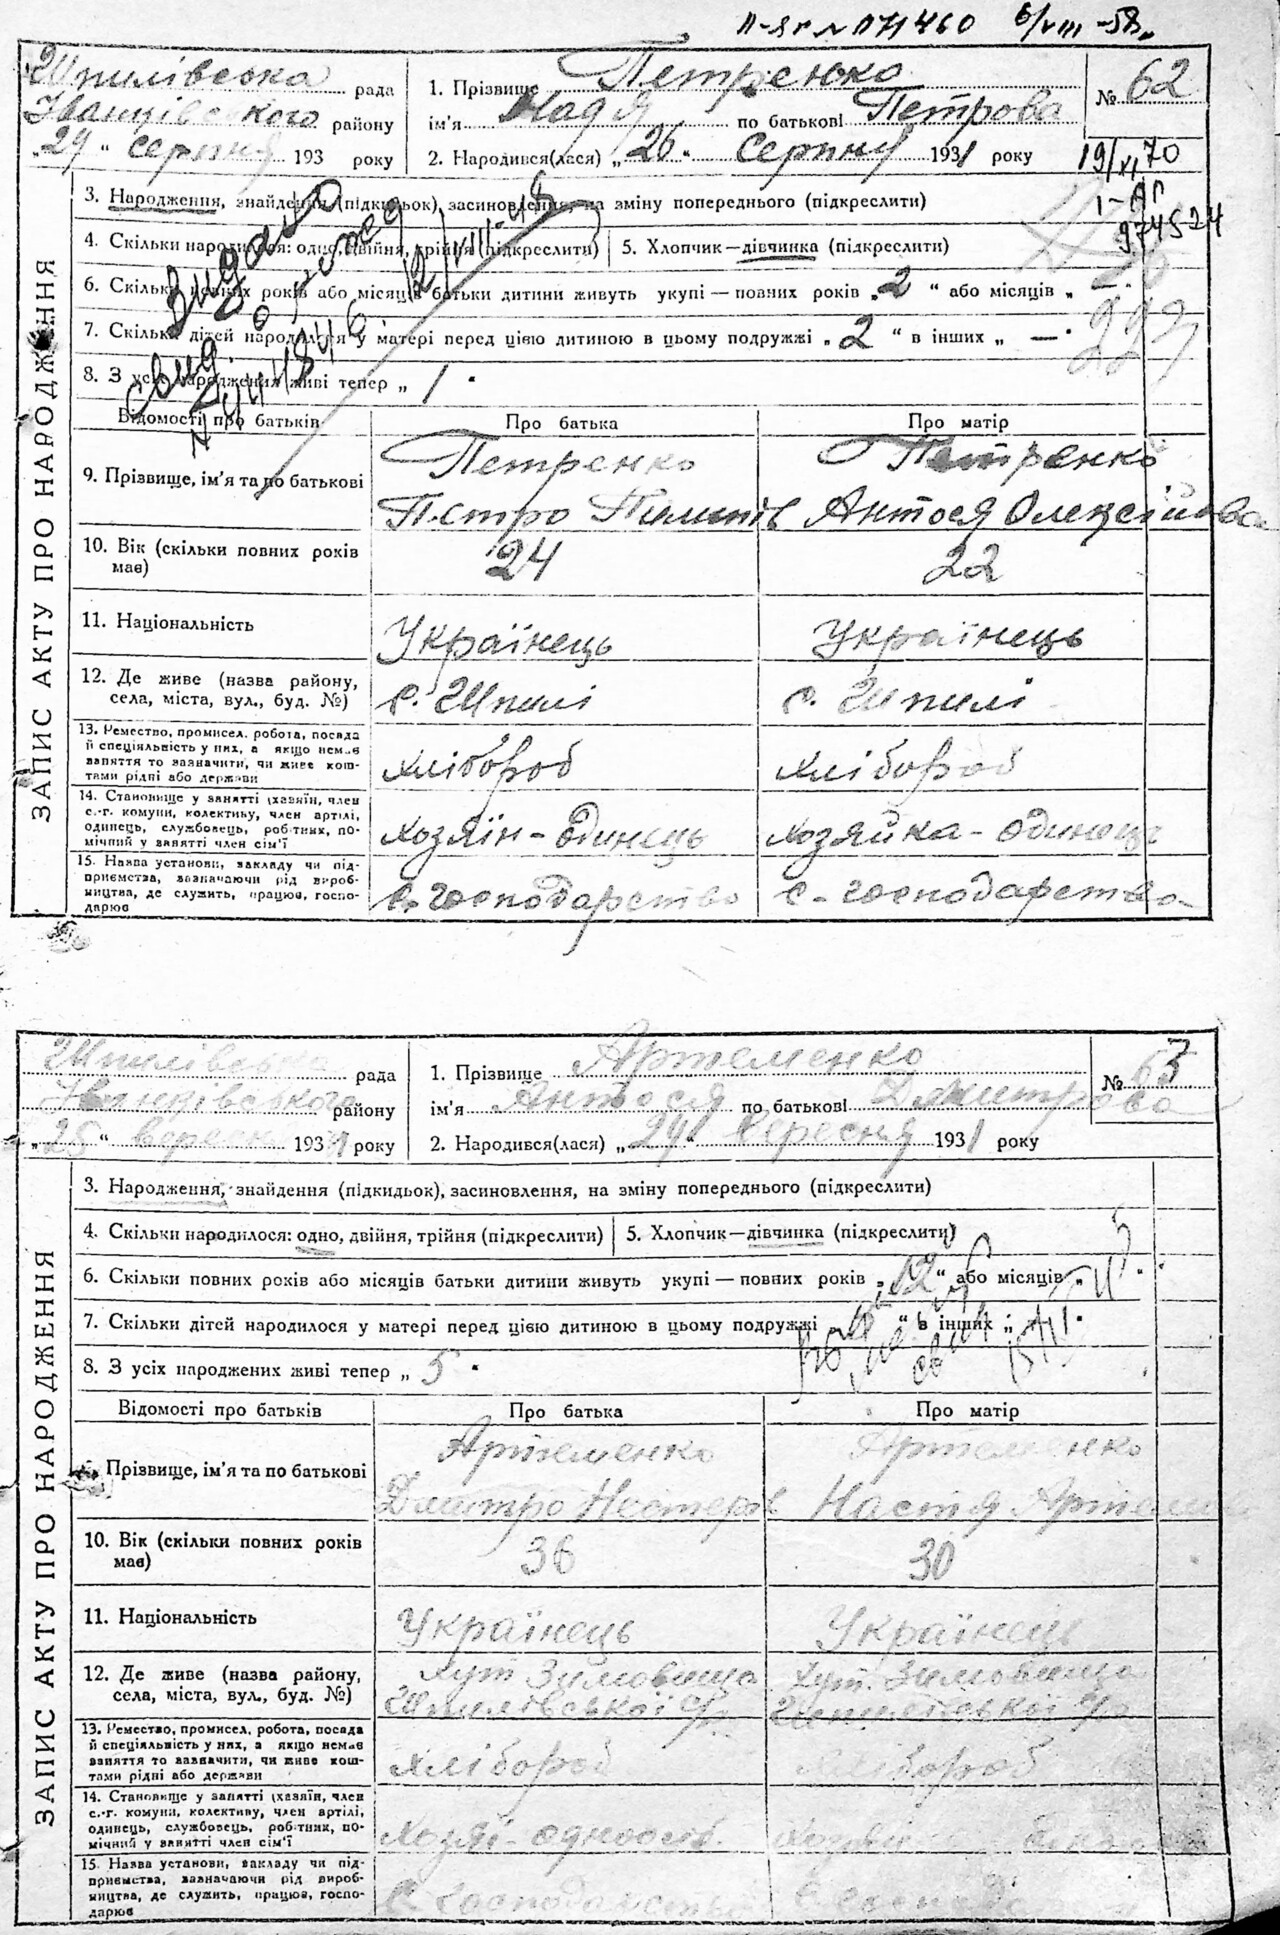 6/VIII-58.
Шпилівська рада
Іванківського району
"29" серпня 193 року
1. Прізвище Петренко
ім'я Надя по батькові Петрова
2. Народився(лася) "26" Серпня 1931 року
№ 62
19/XI 70
І-АГ
974524
ЗАПИС АКТУ ПРО НАРОДЖЕННЯ
3. Народження, знайдення (підкидьок), засиновлення, на зміну попереднього (підкреслити)
4. Скільки народилося: одно, двійня, трійня (підкреслити) 5. Хлопчик—дівчинка (підкреслити)
6. Скільки повних років або місяців батьки дитини живуть укупі — повних років „ 2 “ або місяців „
7. Скільки дітей народилося у матері перед цією дитиною в цьому подружжі „ 2 “ в інших „ —
8. З усіх народжених живі тепер „ 1
Видано
Відомості про батьків Про батька Про матір
9. Прізвище, ім'я та по батькові Петренко Петренко
Петро Пилипів Антося Олексійова
10. Вік (скільки повних років має) 24 22
11. Національність Українець Українець
12. Де живе (назва району, села, міста, вул., буд. №) с. Шпилі с. Шпилі
13. Ремество, промисел, робота, посада й спеціяльність у них, а якщо немає заняття то зазначити, чи живе коштами рідні або держави Хлібороб Хлібороб
14. Становище у занятті (хазяїн, член с.-г. комуни, колективу, член артілі, одинець, службовець, робітник, помічний у занятті член сім'ї Хозяїн-одинець Хозяйка-одинець
15. Назва установи, закладу чи підприємства, зазначаючи рід виробництва, де служить, працює, господарює С. господарство С-господарство
Шпилівська рада
Іванківського району
"25" вересня 1931 року
1. Прізвище Артеменко
ім'я Антося по батькові Дмитрова
2. Народився(лася) „24“ Вересня 1931 року
№ 63
ЗАПИС АКТУ ПРО НАРОДЖЕННЯ
3. Народження, знайдення (підкидьок), засиновлення, на зміну попереднього (підкреслити)
4. Скільки народилося: одно, двійня, трійня (підкреслити) 5. Хлопчик—дівчинка (підкреслити)
6. Скільки повних років або місяців батьки дитини живуть укупі — повних років „ 12 “ або місяців „
7. Скільки дітей народилося у матері перед цією дитиною в цьому подружжі „ “ в інших „
8. З усіх народжених живі тепер „ 5
Відомості про батьків Про батька Про матір
Прізвище, ім'я та по батькові Артеменко Артеменко
Дмитро Нестерів Настя
10. Вік (скільки повних років має) 36 30
11. Національність Українець Українець
12. Де живе (назва району, села, міста, вул., буд. №) Хут Зимовища Шпилівської с/р Хут. Зимовища Шпилівської с/р
13. Ремество, промисел, робота, посада й спеціяльність у них, а якщо немає заняття то зазначити, чи живе коштами рідні або держави Хлібороб Хлібороб
14. Становище у занятті (хазяїн, член с.-г. комуни, колективу, член артілі, одинець, службовець, робітник, помічний у занятті член сім'ї
15. Назва установи, закладу чи підприємства, зазначаючи рід виробництва, де служить, працює, господарює С. господарство